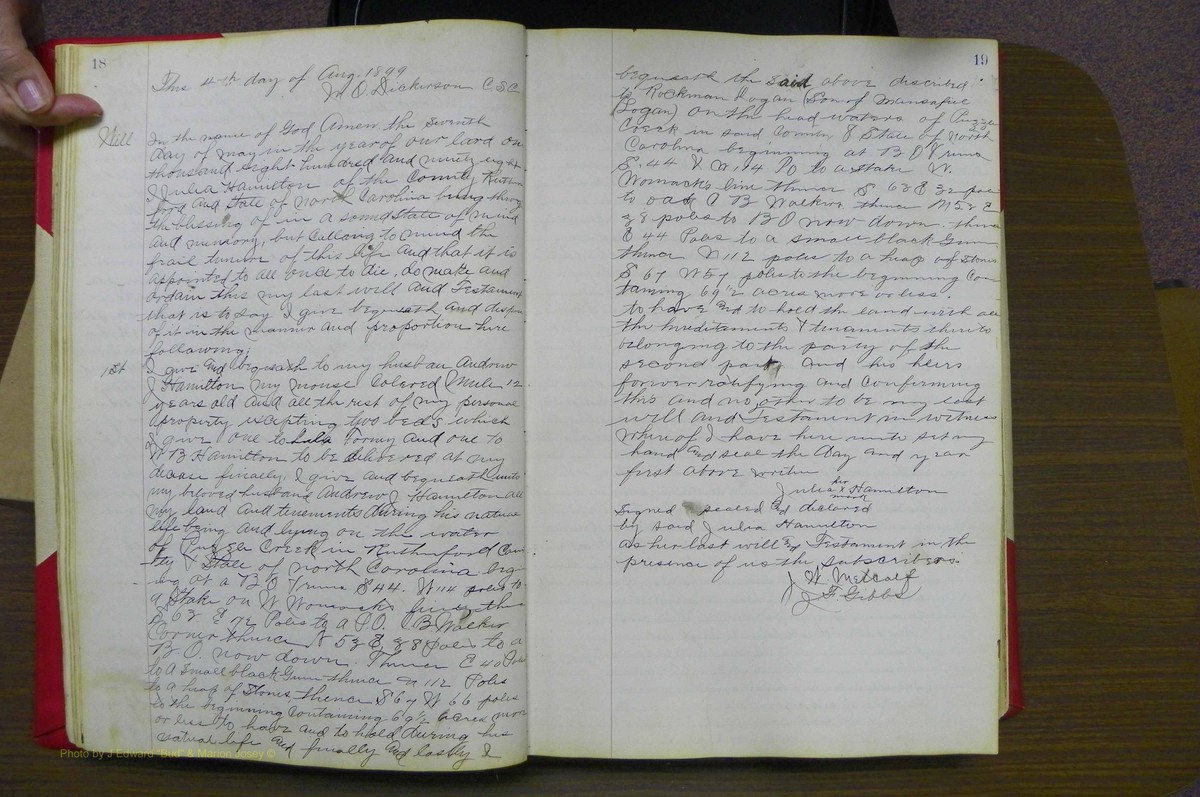 18
This 4th day of Aug. 1899
M. O. Dickerson C S C
Will
In the name of God Amen, the Seventh
day of may in the year of our lord on
thousand eight hundred and ninety eight
I Julia Hamilton of the County Ruther
ford and State of North Carolina being throug
the blessing of in a sound State of mind
and memory, but Calling to mind the
frail tenure of this life and that it is
appointed to all once to die, do make and
ordain this my last will and Testament
that is to say I give bequeath and dispos
of it in the manner and proportion here
following;
1st
I give and bequeath to my husban Andrew
J Hamilton my mouse Colored Mule 12
years old and all the rest of my personal
property excepting two beds which
I give one to and one to
W B Hamilton to be delivered at my
decease finaly I give and bequeath unto
my beloved husband Andrew J Hamilton all
my land and tenements during his natural
life being and lying on the water
of Creek in Rutherford Coun
ty & State of north Carolina begin
ing at a B O S 44. W 114 poles to
a Stake on W Womacks thence
E 72 Poles to a P.O. B Walker
Corner thence N 53 E 38 poles to a
B.O. now down. Thence E 40 Poles
to a small black Gum thence N 112 Poles
to a heap of Stones thence S 67 W 66 poles
to the beginning Containing 69½ acres more
or less to have and to hold during his
natural life and finally and lastly I
19
bequeath the said above described
to Rockman Logan (Son of
Logan) on the head waters of
Creek in said County & State of North
Carolina beginning at B O
S. 44 114 PO to a stake W.
Womacks line thence S 63 E 32 poles
to oak A B Walkers thence
38 poles to B O now down. thence
E 44 Poles to a small black Gum
thence N 112 poles to a heap of Stones
S 67 W 54 poles to the beginning Con
taining 69½ acres more or less.
to have and to hold the land with all
the hreditaments & tenaments thereto
belonging to the party of the
second part and his heirs
forever ratifying and Confirming
this and no other to be my last
will and Testament in witness
where of I have here unto set my
hand and seal the day and year
first above written
her
Julia x Hamilton
mark
Signed sealed and declared
by said Julia Hamilton
as her last will and Testament in the
presence of us the Subscribers.
J. W. Metcalf
J F Gibbs
Photo by J Edward "Bud" & Marion Josey ©